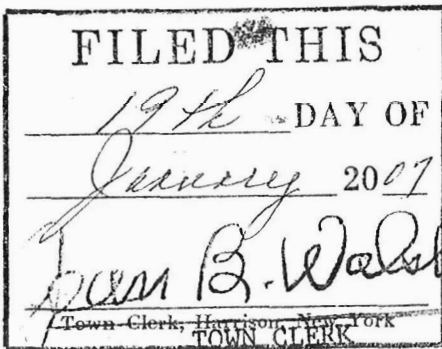 FILED THIS
19th DAY OF
January 2007
Joan B. Walsh
Town Clerk, Harrison, New York
TOWN CLERK